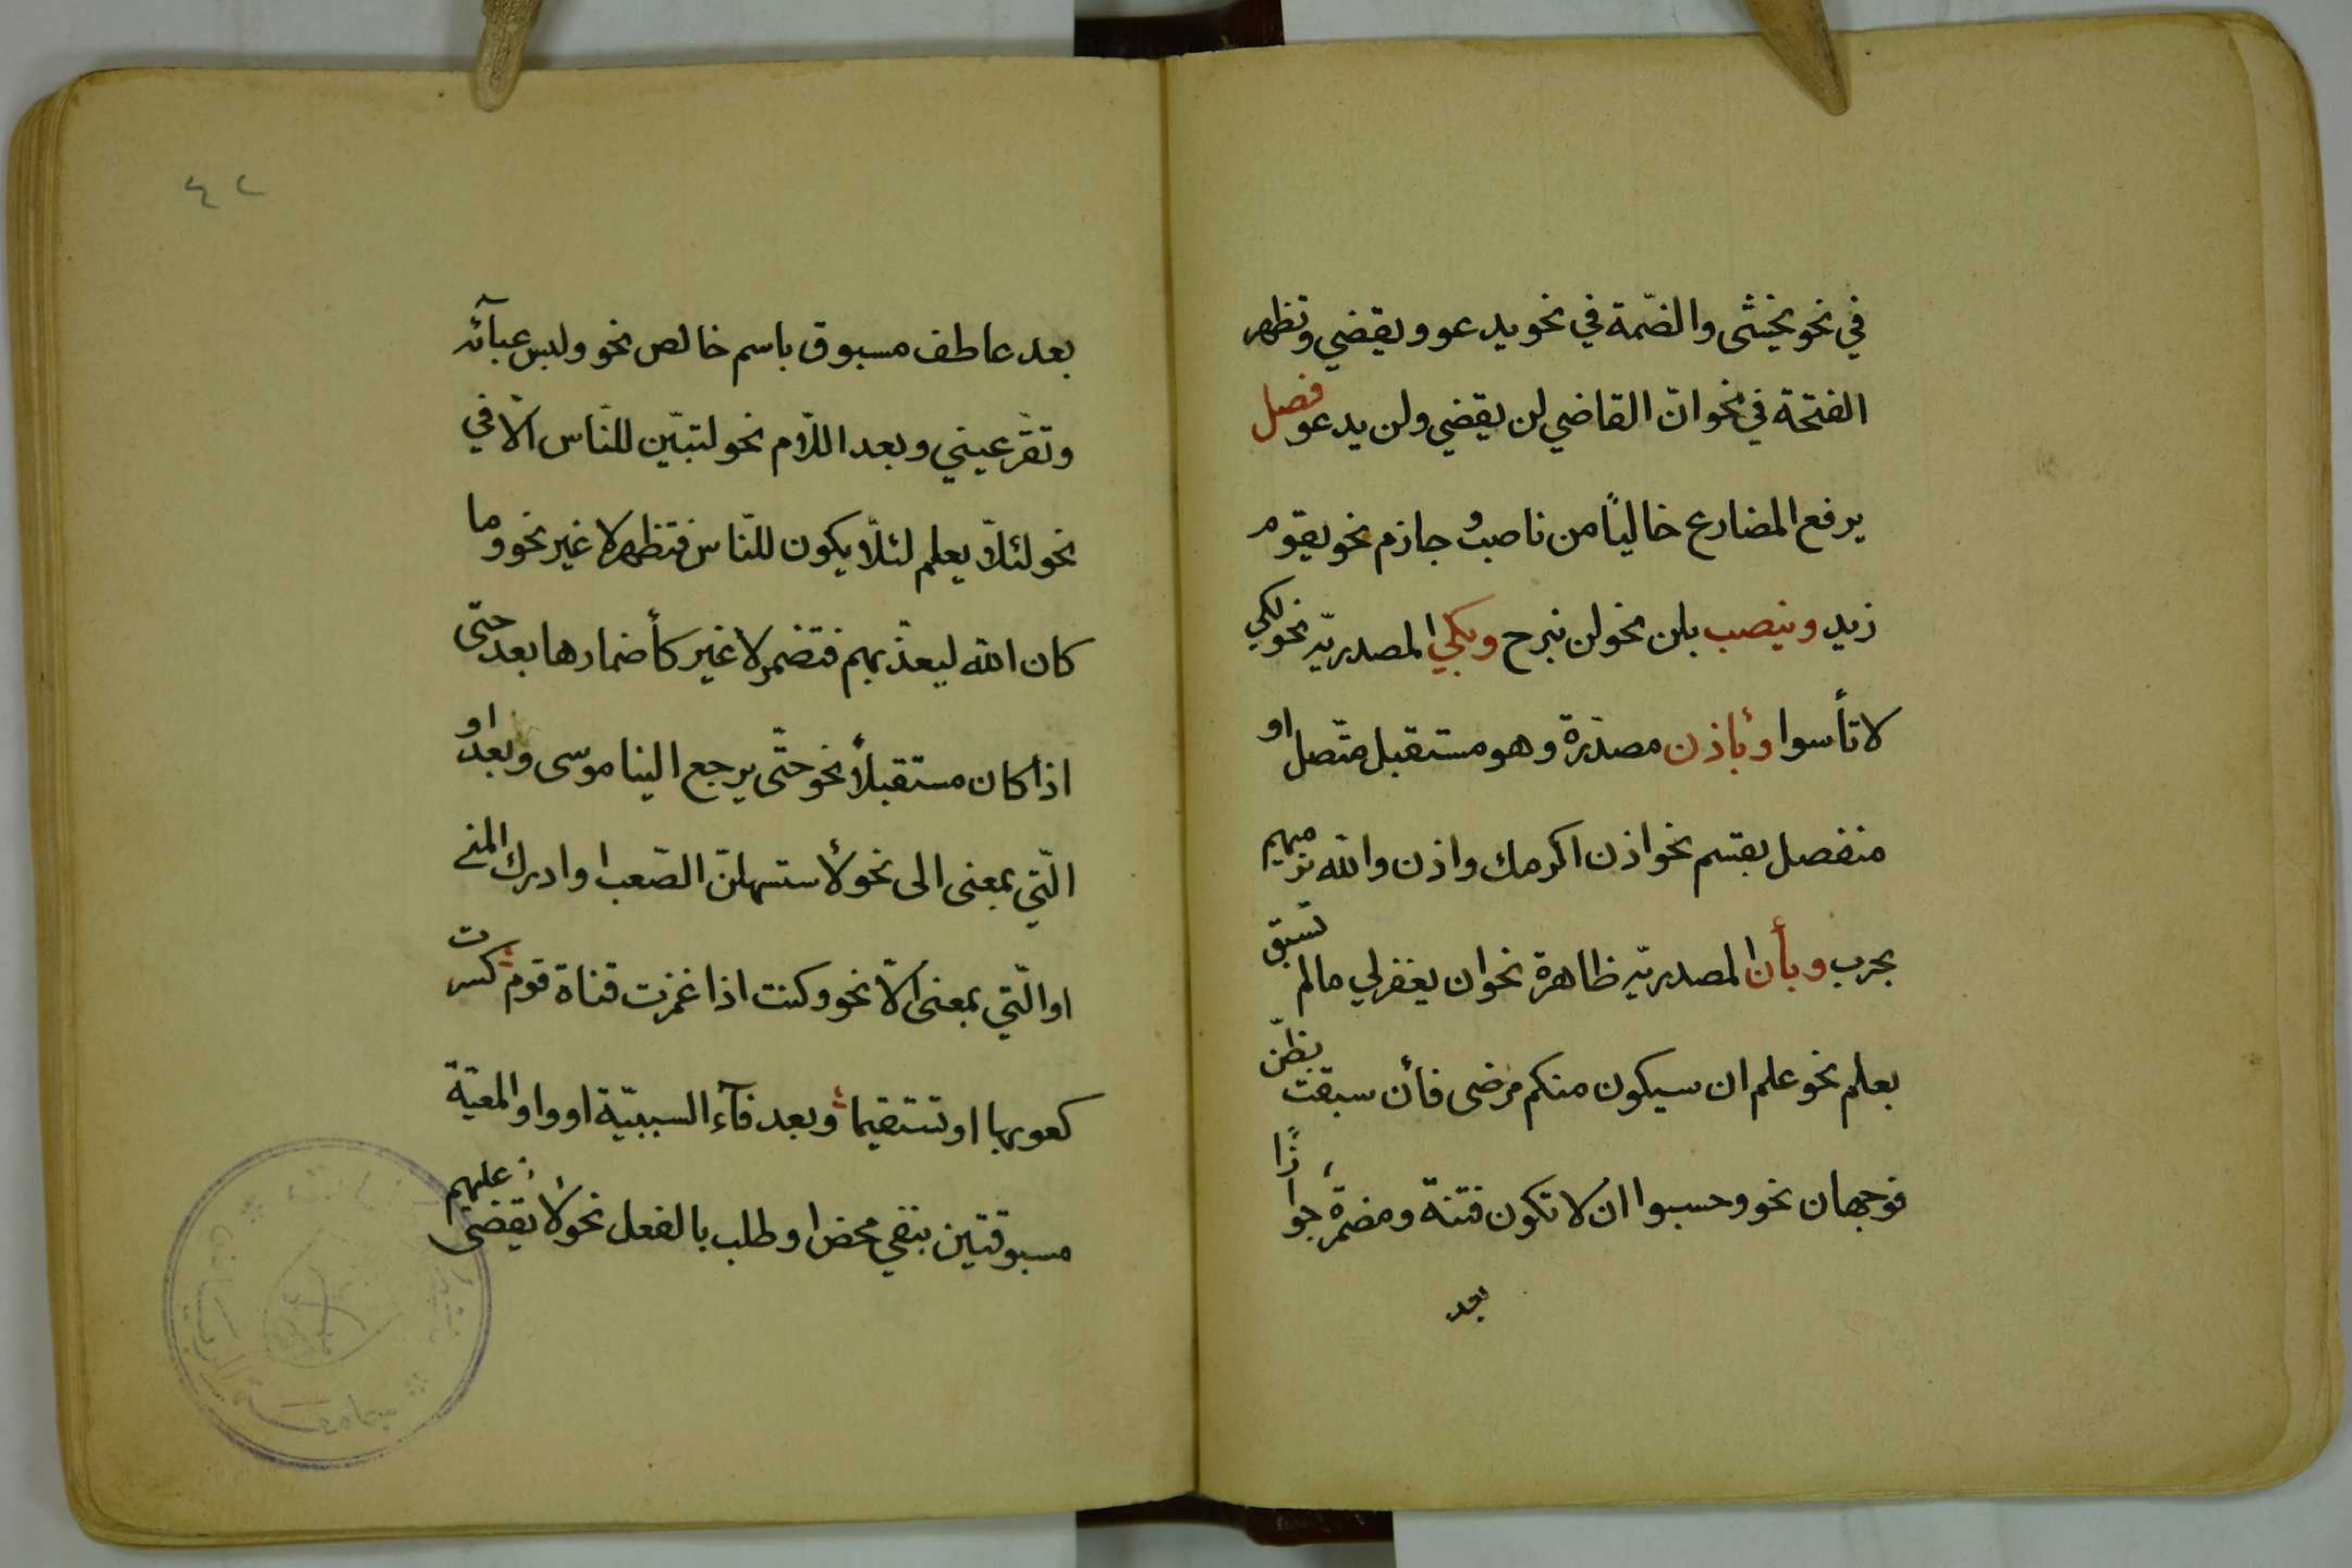 في نحو يخشى والضمّة في نحو يدعو ويقضي وتظهر
الفتحة في نحو انّ القاضي لن يقضي ولن يدعو فصل
يرفع المضارع خاليًا من ناصب وجازم نحو يقوم
زيد وينصب بلن نحو لن نبرح وبكي المصدريّه نحو لكي
لا تأسوا وبأذن مصدّرة وهو مستقبل متّصل او
منفصل بقسم نحو اذن اكرمك واذن والله نرميهم
بحرب وبأن المصدريّه ظاهرة نحو ان يغفر لي مالم تسبق
بعلم نحو علم ان سيكون منكم مرضى فأن سبقت بظنّ
فوجهان نحو وحسبوا ان لا تكون فتنة ومضمرة جوازًا
بعد
٤٢
بعد عاطف مسبوق باسم خالص نحو ولبس عبآئة
وتقرّ عيني وبعد اللّام نحو لتبيّن للنّاس الّا في
نحو لئلّا يعلم لئلّا يكون للنّاس فتظهر لا غير نحو وما
كان الله ليعذّبهم فتضمر لا غير كأضمارها بعد حتّى
اذا كان مستقبلاً نحو حتّى يرجع الينا موسى وبعد او
الّتي بمعنى الى نحو لأستسهلنّ الصّعب او ادرك المنى
او الّتي بمعنى الّا نحو وكنت اذا غمزت قناة قوم كسرت
كعوبها او تستقيما وبعد فآء السببيّة او واو المعيّة
مسبوقتين بنفي محض او طلب بالفعل نحو لا يقضى عليهم